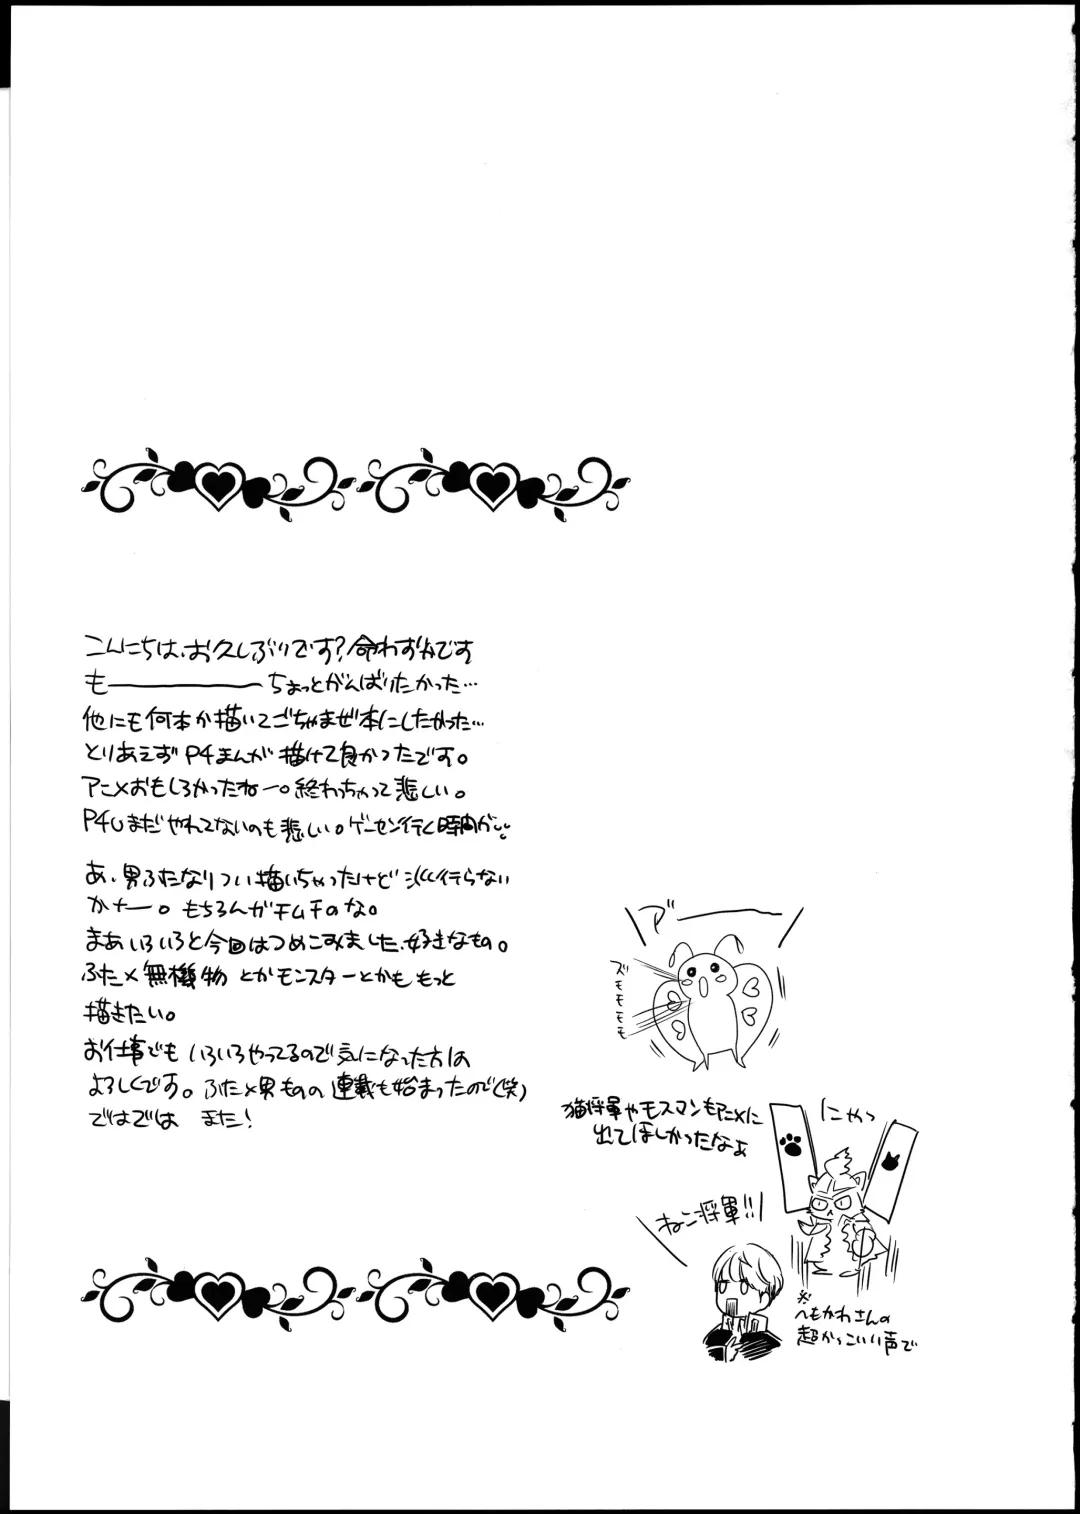 こんにちは、お久しぶりです?命わずかです
もーーーーーちょっとがんばりたかった…
他にも何本か描いてごちゃまぜ本にしたかった…
とりあえずP4まんが描けて良かったです。
アニメおもしろかったねー。終わっちゃって悲しい。
P4Uまだやれてないのも悲しい。ゲーセン行く時間が
あ、男ふたなりつい描いちゃったけど
かナー。もちろんガチムチのな。
まあいろいろと今回はつめこみました、好きなもの。
ふた×無機物とかモンスターとかももっと
描きたい。
お仕事でもいろいろやってるので気になった方は
よろしくです。ふた×男ものの連載も始まったので(笑)
ではでは また!
ア゛ーーー
ズモモモモ
猫将軍やモスマンもアニメに
出てほしかったなぁ
にゃっ
ねこ将軍!!
※
かわさんの
超かっこいい声で